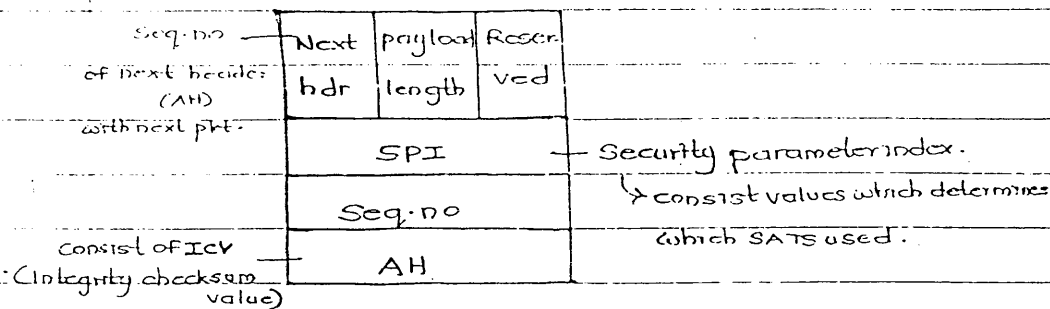 Seq.no
of next header
(AH)
with next pkt.
Next hdr
payload length
Reser ved
SPI
Security parameter index.
↳ consist values which determines
which SA is used.
Seq.no
consist of ICV
(Integrity checksum
value)
AH